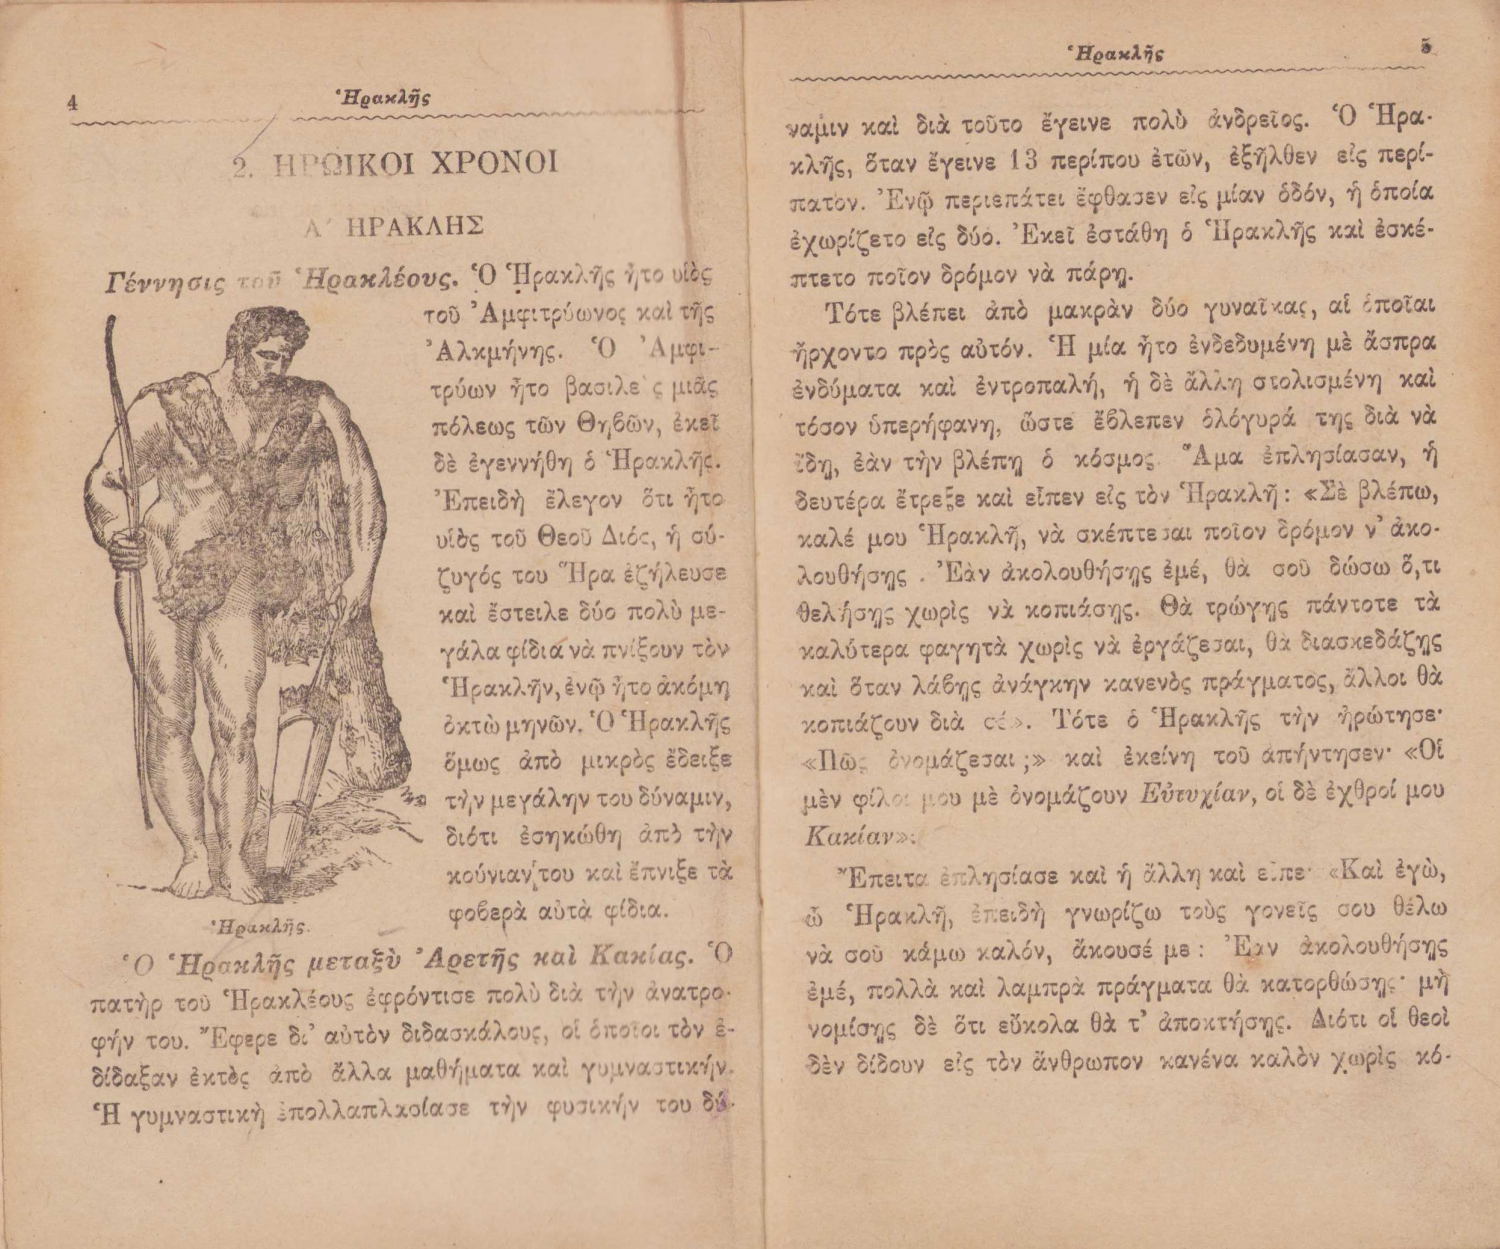 4
Ἡρακλῆς
2. ΗΡΩΙΚΟΙ ΧΡΟΝΟΙ
Α΄ ΗΡΑΚΛΗΣ
Γέννησις τοῦ Ἡρακλέους. Ὁ Ἡρακλῆς ἦτο υἱὸς
τοῦ Ἀμφιτρύωνος καὶ τῆς
Ἀλκμήνης. Ὁ Ἀμφι-
τρύων ἦτο βασιλε ς μιᾶς
πόλεως τῶν Θηβῶν, ἐκεῖ
δὲ ἐγεννήθη ὁ Ἡρακλῆς.
Ἐπειδὴ ἔλεγον ὅτι ἦτο
υἱὸς τοῦ Θεοῦ Διός, ἡ σύ-
ζυγός του Ἥρα ἐζήλευσε
καὶ ἔστειλε δύο πολὺ με-
γάλα φίδια νὰ πνίξουν τὸν
Ἡρακλῆν, ἐνῷ ἦτο ἀκόμη
ὀκτὼ μηνῶν. Ὁ Ἡρακλῆς
ὅμως ἀπὸ μικρὸς ἔδειξε
τὴν μεγάλην του δύναμιν,
διότι ἐσηκώθη ἀπὸ τὴν
κούνιαν του καὶ ἔπνιξε τὰ
φοβερὰ αὐτὰ φίδια.
Ἡρακλῆς.
Ὁ Ἡρακλῆς μεταξὺ Ἀρετῆς καὶ Κακίας. Ὁ
πατὴρ τοῦ Ἡρακλέους ἐφρόντισε πολὺ διὰ τὴν ἀνατρο-
φήν του. Ἔφερε δι᾽ αὐτὸν διδασκάλους, οἱ ὁποῖοι τὸν ἐ-
δίδαξαν ἐκτὸς ἀπὸ ἄλλα μαθήματα καὶ γυμναστικήν.
Ἡ γυμναστικὴ ἐπολλαπλασίασε τὴν φυσικήν του δύ-
Ἡρακλῆς
5
ναμιν καὶ διὰ τοῦτο ἔγεινε πολὺ ἀνδρεῖος. Ὁ Ἡρα-
κλῆς, ὅταν ἔγεινε 13 περίπου ἐτῶν, ἐξῆλθεν εἰς περί-
πατον. Ἐνῷ περιεπάτει ἔφθασεν εἰς μίαν ὁδόν, ἡ ὁποία
ἐχωρίζετο εἰς δύο. Ἐκεῖ ἐστάθη ὁ Ἡρακλῆς καὶ ἐσκέ-
πτετο ποῖον δρόμον νὰ πάρῃ.
Τότε βλέπει ἀπὸ μακρὰν δύο γυναῖκας, αἱ ὁποῖαι
ἤρχοντο πρὸς αὐτόν. Ἡ μία ἦτο ἐνδεδυμένη μὲ ἄσπρα
ἐνδύματα καὶ ἐντροπαλή, ἡ δὲ ἄλλη στολισμένη καὶ
τόσον ὑπερήφανη, ὥστε ἔβλεπεν ὁλόγυρά της διὰ νὰ
ἴδῃ, ἐὰν τὴν βλέπῃ ὁ κόσμος. Ἅμα ἐπλησίασαν, ἡ
δευτέρα ἔτρεξε καὶ εἶπεν εἰς τὸν Ἡρακλῆ: «Σὲ βλέπω,
καλέ μου Ἡρακλῆ, νὰ σκέπτεσαι ποῖον δρόμον ν᾽ ἀκο-
λουθήσῃς . Ἐὰν ἀκολουθήσῃς ἐμέ, θὰ σοῦ δώσω ὅ,τι
θελήσῃς χωρὶς νὰ κοπιάσῃς. Θὰ τρώγῃς πάντοτε τὰ
καλύτερα φαγητὰ χωρὶς νὰ ἐργάζεσαι, θὰ διασκεδάζῃς
καὶ ὅταν λάβῃς ἀνάγκην κανενὸς πράγματος, ἄλλοι θὰ
κοπιάζουν διὰ σέ». Τότε ὁ Ἡρακλῆς τὴν ἠρώτησε·
«Πῶς ὀνομάζεσαι;» καὶ ἐκείνη τοῦ ἀπήντησεν· «Οἱ
μὲν φίλοι μου μὲ ὀνομάζουν Εὐτυχίαν, οἱ δὲ ἐχθροί μου
Κακίαν».
Ἔπειτα ἐπλησίασε καὶ ἡ ἄλλη καὶ εἶπε· «Καὶ ἐγώ,
ὦ Ἡρακλῆ, ἐπειδὴ γνωρίζω τοὺς γονεῖς σου θέλω
νὰ σοῦ κάμω καλόν, ἄκουσέ με : Ἐὰν ἀκολουθήσῃς
ἐμέ, πολλὰ καὶ λαμπρὰ πράγματα θὰ κατορθώσῃς· μὴ
νομίσῃς δὲ ὅτι εὔκολα θὰ τ᾽ ἀποκτήσῃς. Διότι οἱ θεοὶ
δὲν δίδουν εἰς τὸν ἄνθρωπον κανένα καλὸν χωρὶς κό-